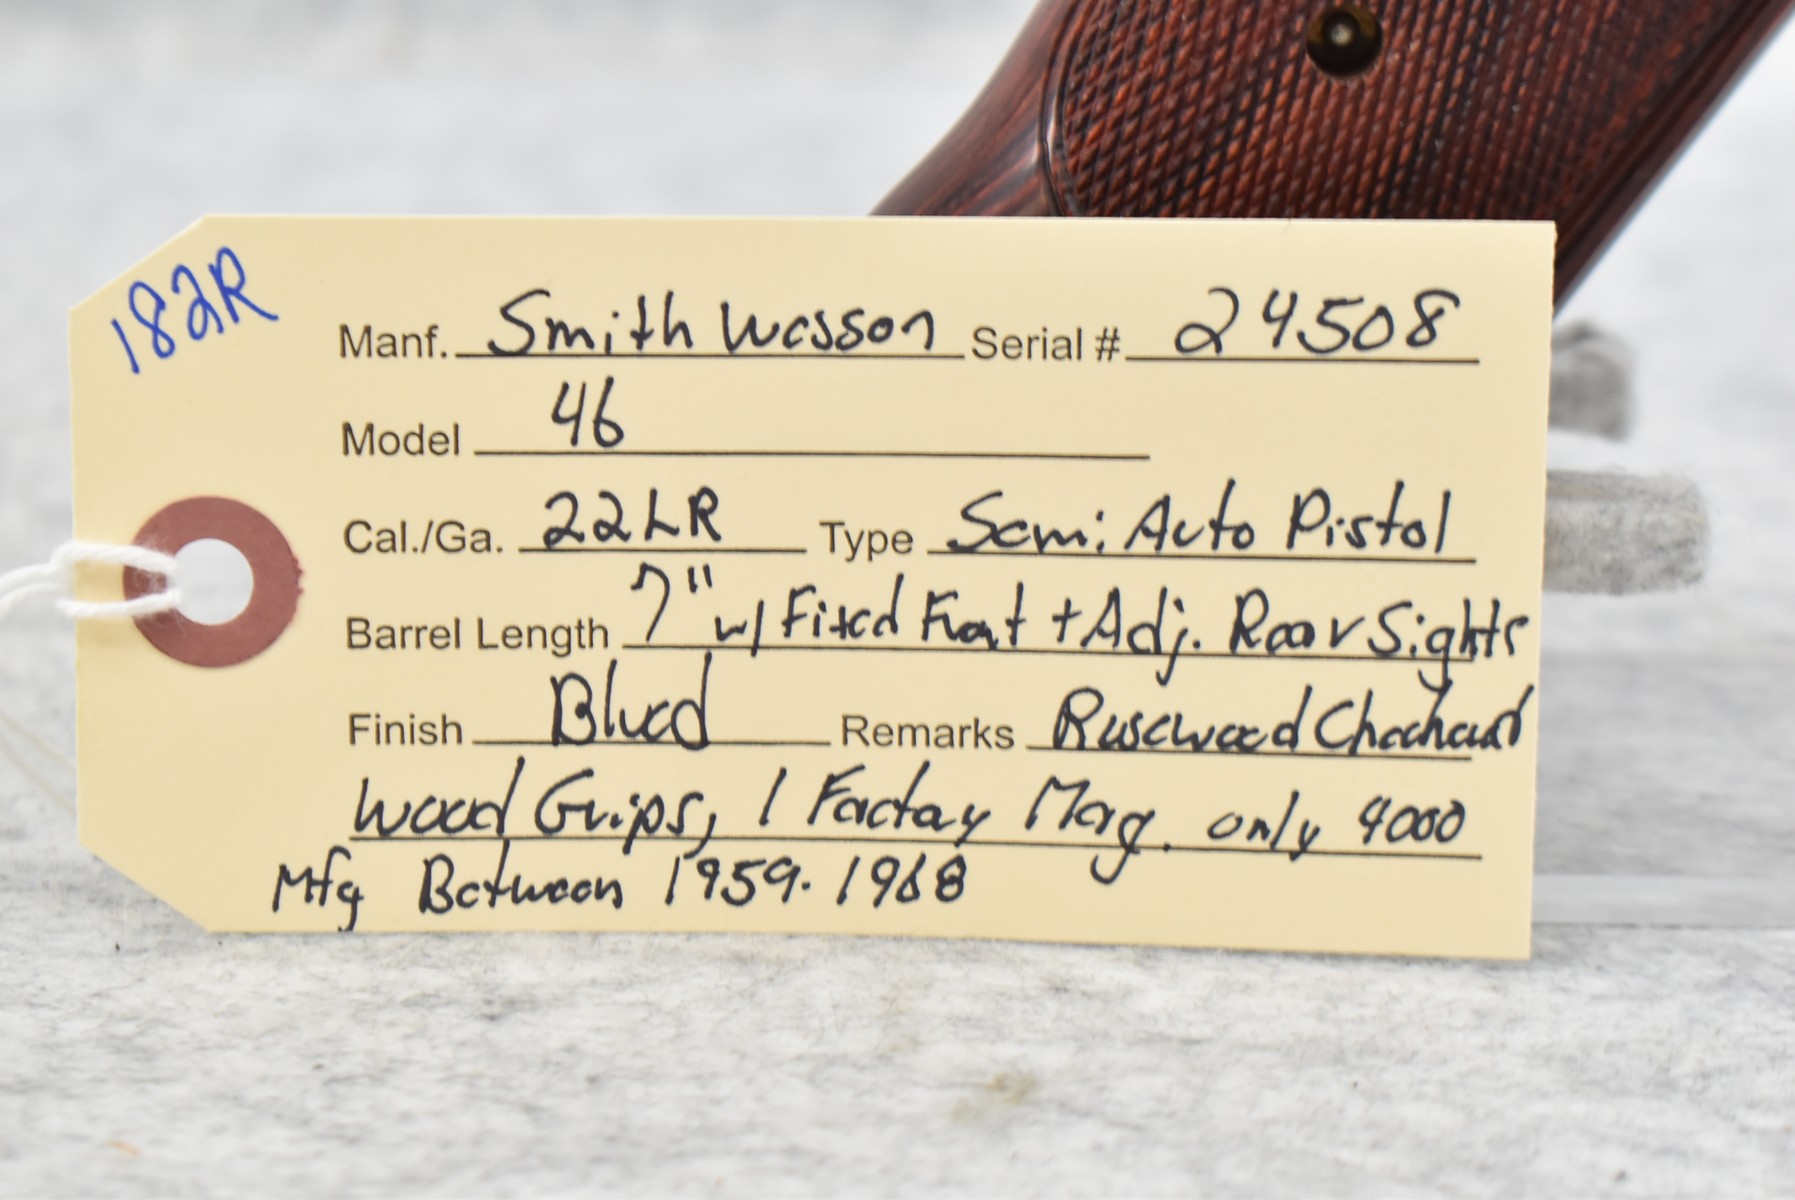 182R
Manf. Smith Wesson Serial # 24508
Model 46
Cal./Ga. 22LR Type Semi Auto Pistol
Barrel Length 7" w/ Fixed Front + Adj. Rear Sights
Finish Blued Remarks Rosewood Checkered
Wood Grips, 1 Factory Mag. only 4000
Mfg Between 1959-1968